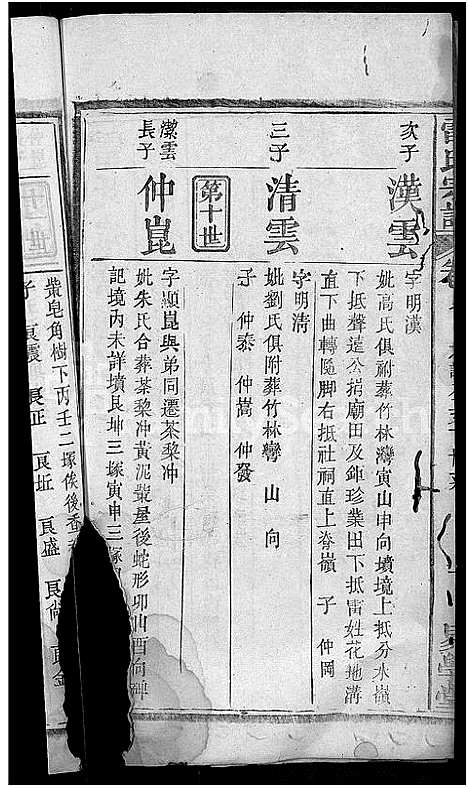 雷氏宗譜
次子
漢雲
字明漢
妣高氏俱祔葬竹林灣寅山申向墳境上抵分水嶺
下抵聲遠公捐廟田及鉮珍業田下抵雷姓花地溝
直下曲轉隨脚右抵社祠直上脊嶺 子 仲岡
三子
清雲
字明清
妣劉氏俱附葬竹林灣 山 向
子 仲泰 仲嵩 仲發
第十世
潔雲
長子
仲崑
字顯崑與弟同遷茶黎冲
妣朱氏合葬茶黎冲黃泥凳屋後蛇形卯山酉向碑
記境内未詳墳艮坤三塚寅申三塚
十一世
葬皂角樹下丙壬二塚俟後香
子 良震 良正 良坵 良盛 良倘 良金